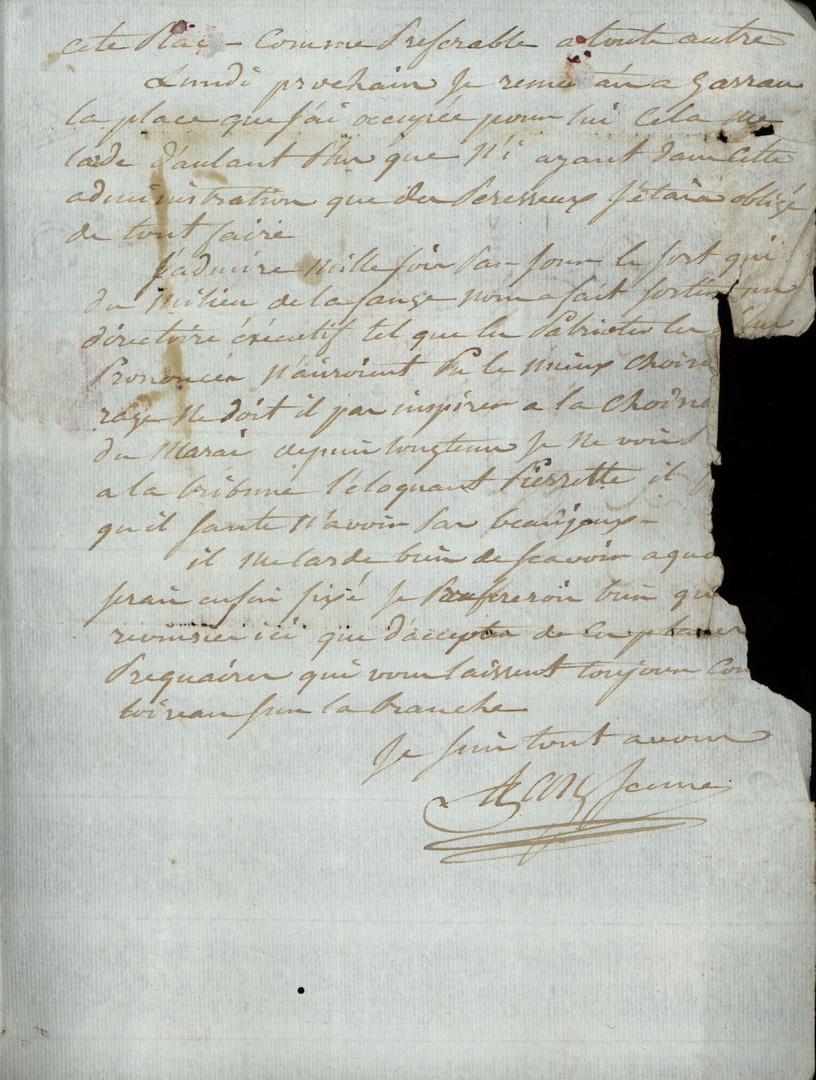 cete Place comme Preferable a toute autre
Lundi prochain Je remet a Garrau
la place que J'ai occupée pour lui cela me
tarde d'autant Plus que n'i ayant dans cette
administration que des Peresseux J'etais obligé
de tout faire
J'admire mille fois Par Jour le sort qui
du milieu de la fange nous a fait sortir un
directoire éxécutif tel que les Patriotes les Plus
Prononcés n'auroient Pu le mieux choisir
rage ne doit il pas inspirer a la
du Marai depuis longtems Je ne vois
a la tribune l'eloquant Pierrette il
qu'il sante n'avoir Pas beaujeux
il me tarde bien de scavoir a quo
serais enfin fixé Je Prefererois bien que
ici que d'accepter de ces places
Prequaires qui vous laissent toujours com
loiseau sur la branche
Je suis tout a vous
Jeune